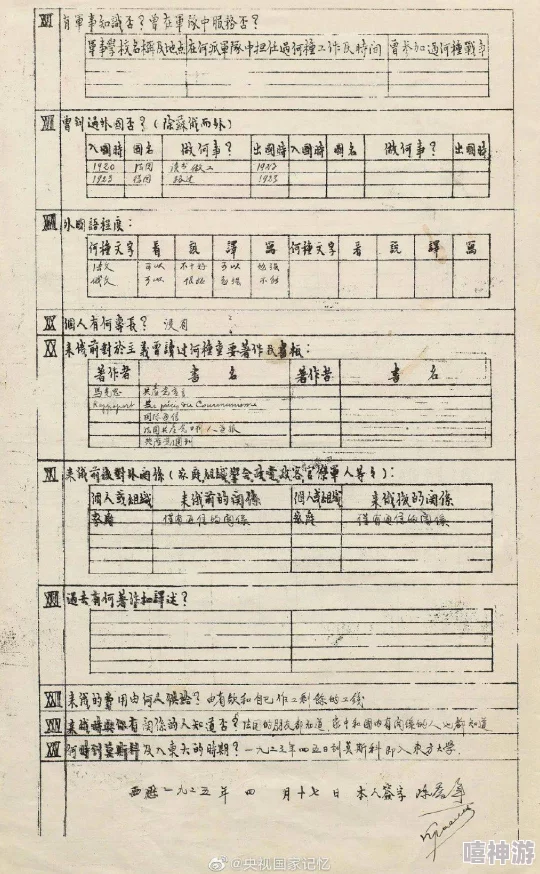 XVI 有軍事知識否？曾在軍隊中服務否？
軍事學校名稱及地点 在何派軍隊中担任過何種工作及時間 曾參加過何種戰爭
XVII 曾到過外国否？(除蘇俄而外)
入國時 國名 做何事？ 出國時 入國時 國名 做何事？ 出國時
1920 法国 读书做工
1923 德国 1923
XVIII 外國語程度：
何種文字 看 說 譯 寫 何種文字 看 說 譯 寫
法文 可以 不十好 可以 勉强
俄文 可以
XIX 個人有何專長？ 没有
XX 来俄前對於主義曾讀过何種重要著作及書報：
著作者 書名 著作者 書名
馬克思 共產党宣言
Rappoport du Communisme
国际通信
共產党週刊
XXI 来俄前後對外関係(家庭組織學会政党政客官僚軍人等々)：
個人或組織 来俄前的関係 個人或組織 来俄後的関係
家庭 僅有通信的関係 家庭 僅有通信的関係
XXII 過去有何著作和譯述？
XXIII 来俄的費用由何人供給？由自己作工剩餘的工錢
XXIV 来俄時與你有関係的人知道否？法国的朋友都知道 家中和國内有関係的人也都知道
XXV 何時到莫斯科及入東大的時期？一九二三年四月五日到莫斯科即入東方大學
西歷一九二五年 四 月十七日 本人簽字
@央视国家记忆
嘻神游